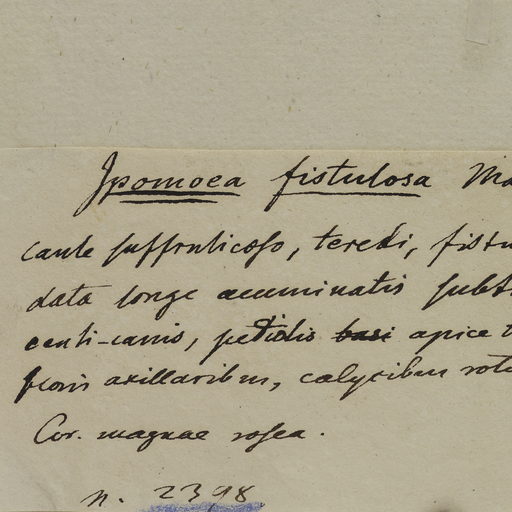 Ipomoea fistulosa Ma
caule suffruticoso, tereti, fistu
data longe acuminatis subt
centi-canis, petiolis basi apice
floris axillaribus, calycibus rotu
Cor. magnae rosea.
n. 2398